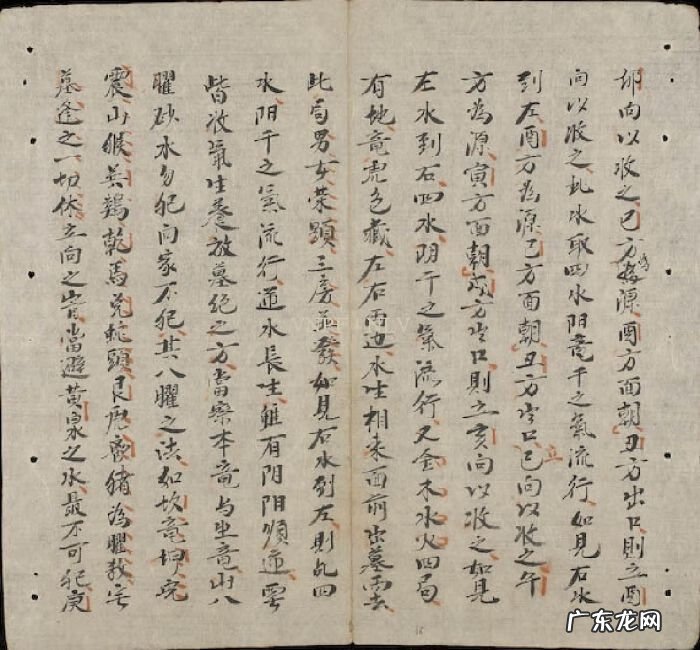 卯向以收之巳方為源酉方面朝丑方出口則立酉
向以收之此水取四水阴竜干之氣流行如見右水
到左酉方為源巳方面朝丑方出口立巳向以收之午
方為源寅方面朝戌方出口則立亥向以收之如見
左水到右四水阴干之氣流行又金木水火四局
有地竜虎包藏左右兩边水生相来面前出墓雲
此局男女荣顯三房並發如見右水到左則此四
水阳干之氣流行逆水長生雖有阴阳順逆要
皆收氣生養放墓絕之方當察本竜与坐竜山八
曜砂水勿犯向家不犯其八曜之法如坎竜坤兔
震山猴巽鷄乾馬兑蛇頭艮虎离猪為曜煞宅
墓逢之一切休立向之时當避黄泉之水最不可犯庚
广东龙网